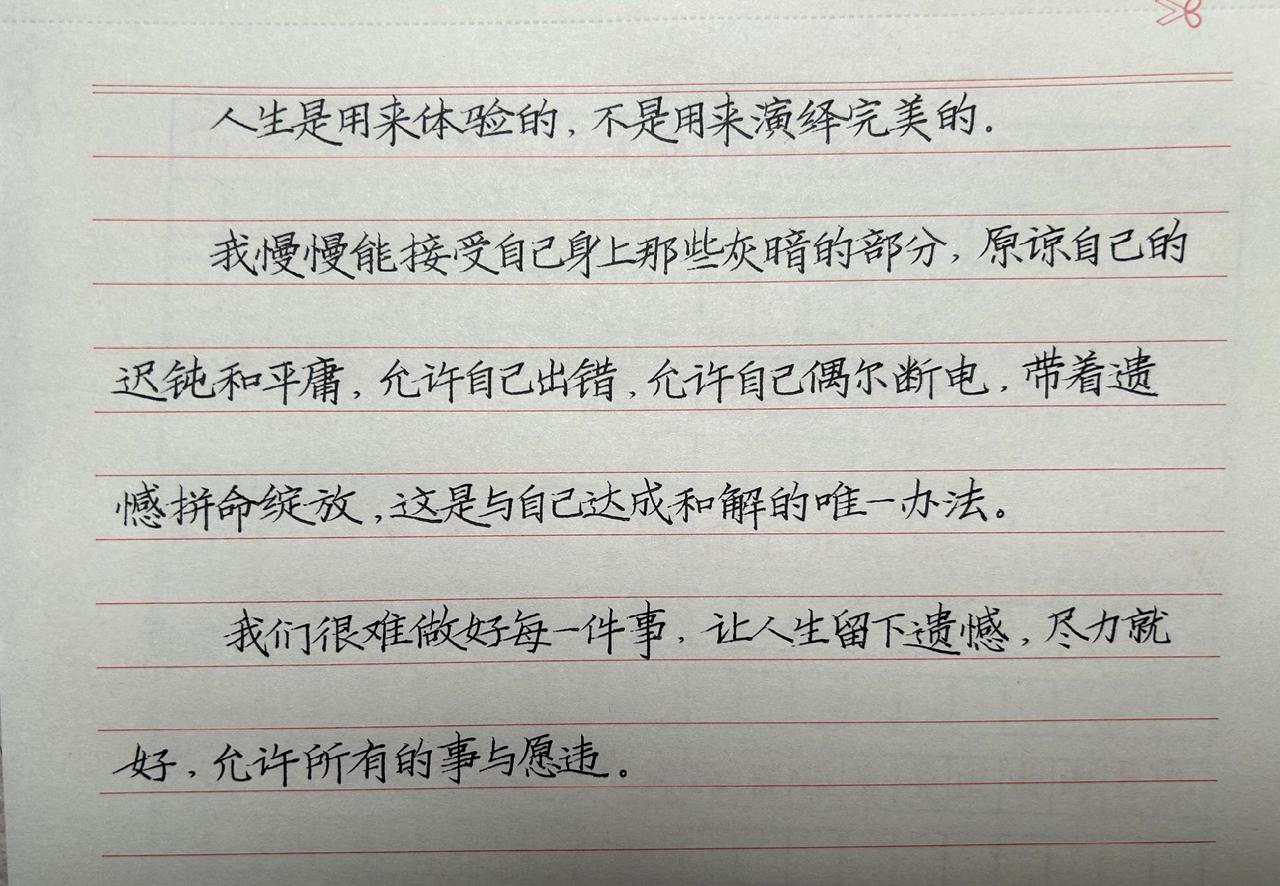 人生是用来体验的,不是用来演绎完美的。
我慢慢能接受自己身上那些灰暗的部分,原谅自己的
迟钝和平庸,允许自己出错,允许自己偶尔断电,带着遗
憾拼命绽放,这是与自己达成和解的唯一办法。
我们很难做好每一件事,让人生留下遗憾,尽力就
好,允许所有的事与愿违。